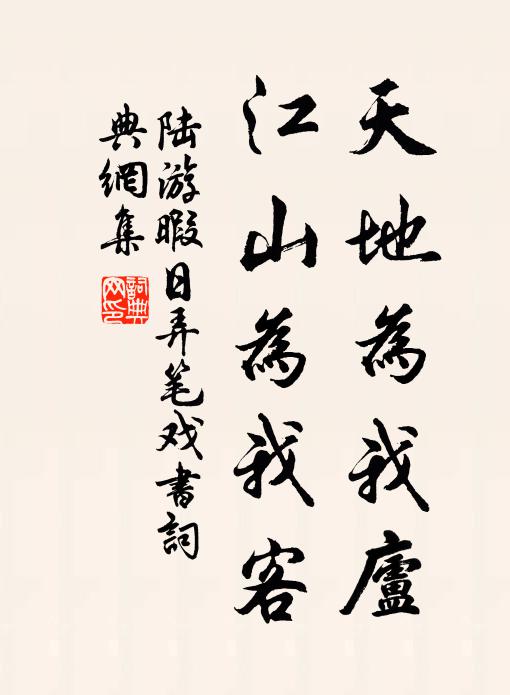 天地為我廬
江山為我客
陆游暇日弄笔戏書詞
典網集
詞典
网印